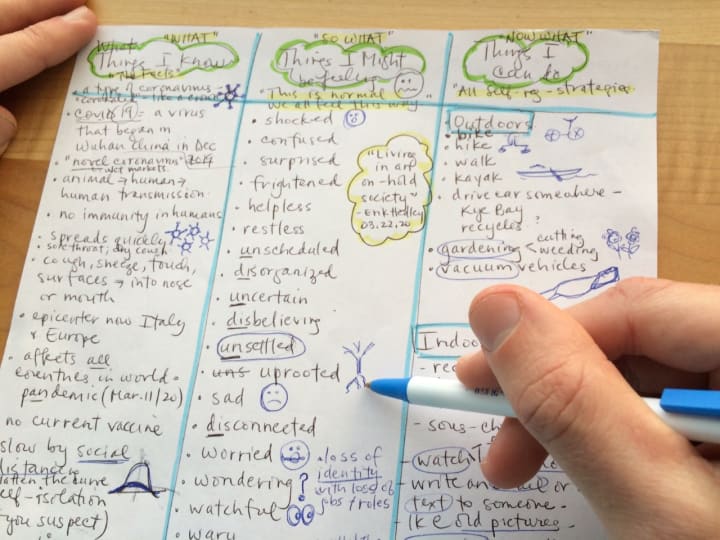 "WHAT"
What
Things I Know
"The Facts"
- a type of coronavirus -
"coronalike" - like a crown
• COVID 19 = a virus
that began in
Wuhan China in Dec
2019
• "novel coronavirus"
wet markets
• animal → human →
human transmission
• no immunity in humans
• spreads quickly
• sore throat, dry cough
• cough, sneeze, touch,
surfaces → into nose
or mouth
• epicenter now Italy
& Europe
• affects all
countries in world -
pandemic (Mar. 11/20)
no current vaccine
slow by social
distancing
flatten the curve
self-isolation
(you suspect)
"SO WHAT"
Things I Might
be feeling
"This is normal
we all feel this way"
• shocked
• confused
• surprised
• frightened
• helpless
• restless
• unscheduled
• disorganized
• uncertain
• disbelieving
• unsettled
• uns uprooted
• sad
• disconnected
• worried
• wondering ?
• watchful
• wary
"Living
in an
on-hold
society"
03.22.20
• loss of
identity
with loss of
jobs / roles
"NOW WHAT"
Things I
can do
"All self-reg-strategies"
• Outdoors
• bike
• hike
• walk
• kayak
• drive car somewhere -
Kye Bay
recycles ?
• gardening < cutting
weeding
• vacuum vehicles
Indoo
- sous-ch
- watch
- write an email or
text to someone -
old pictures -